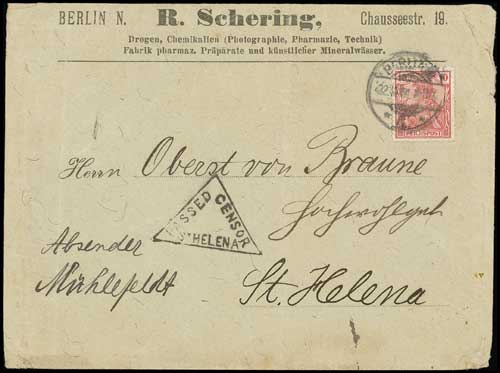 BERLIN N. R. Schering, Chausseestr. 19.
Drogen, Chemikalien (Photographie, Pharmazie, Technik)
Fabrik pharmaz. Präparate und künstlicher Mineralwässer.
REICHSPOST
Herrn Oberst von Braune
Hochwohlgeb
PASSED CENSOR
ST HELENA
Absender
Mühlefeldt
St. Helena